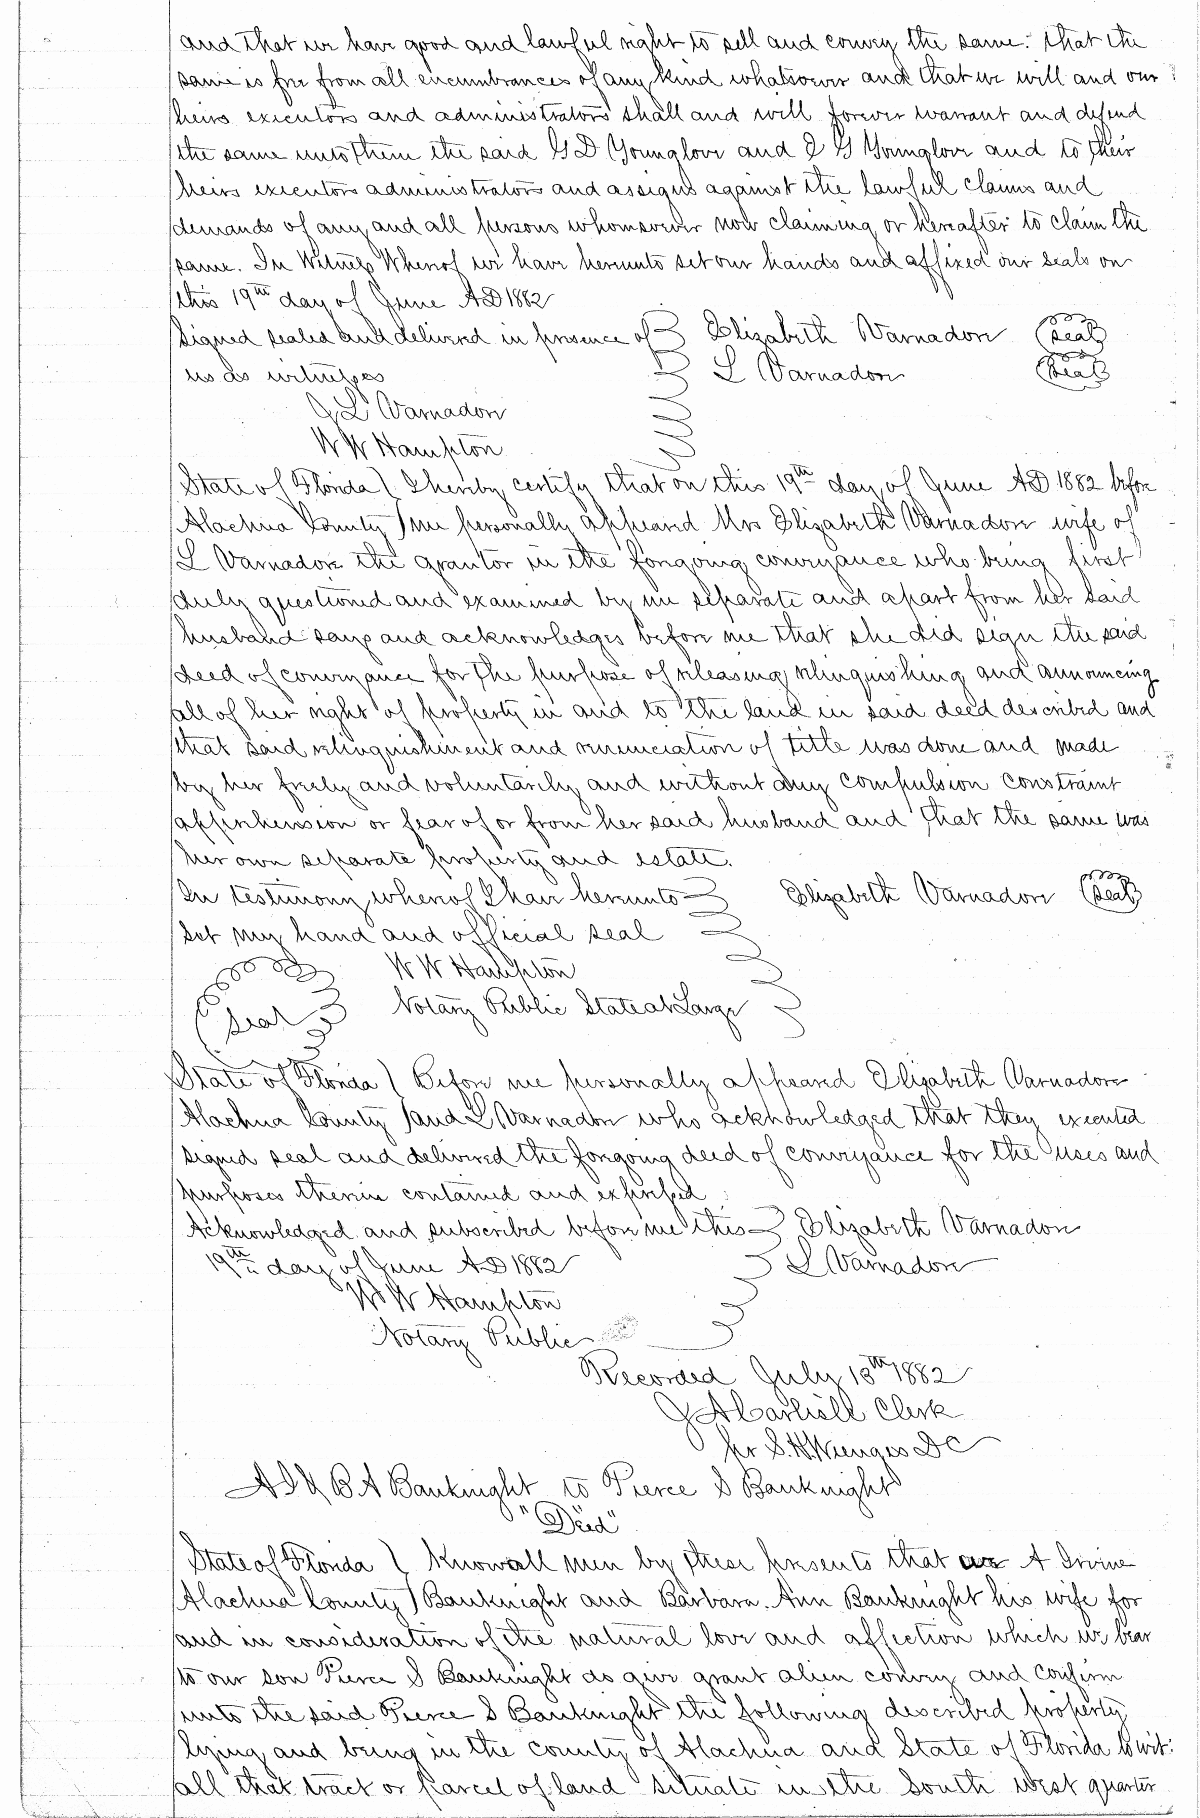 and that we have good and lawful right to sell and convey the same: that the
same is free from all encumbrances of any kind whatsoever and that we will and our
heirs executors and administrators shall and will forever warrant and defend
the same unto them the said G D Younglove and I G Younglove and to their
heirs executors administrators and assigns against the lawful claims and
demands of any and all persons whomsoever now claiming or hereafter to claim the
same. In Witness Whereof we have hereunto set our hands and affixed our seals on
this 19th day of June AD 1882
Signed sealed and delivered in presence of Elizabeth Varnadore (Seal)
us as witnesses L Varnadore (Seal)
J L Varnadore
W W Hampton
State of Florida ( I hereby certify that on this 19th day of June AD 1882 before
Alachua County ) me personally appeared Mrs Elizabeth Varnadore wife of
L Varnadore the grantor in the foregoing conveyance who being first
duly questioned and examined by me separate and apart from her said
husband says and acknowledges before me that she did sign the said
deed of conveyance for the purpose of releasing relinquishing and announcing
all of her right of property in and to the land in said deed described and
that said relinquishment and renunciation of title was done and made
by her freely and voluntarily and without any compulsion constraint
apprehension or fear of or from her said husband and that the same was
her own separate property and estate.
In testimony whereof I have hereunto Elizabeth Varnadore (Seal)
set my hand and official seal
W W Hampton
(Seal) Notary Public State at Large
State of Florida ) Before me personally appeared Elizabeth Varnadore
Alachua County ) and L Varnadore who acknowledged that they executed
signed seal and delivered the foregoing deed of conveyance for the uses and
purposes therein contained and expressed
Acknowledged and subscribed before me this Elizabeth Varnadore
19th day of June AD 1882 L Varnadore
W W Hampton
Notary Public
Recorded July 13th 1882
J A Carlisle Clerk
per S. H. Wienges DC
A I & B A Bauknight to Pierce S Bauknight
"Deed"
State of Florida ( Know all men by these presents that we A Irvine
Alachua County ) Bauknight and Barbara Ann Bauknight his wife for
and in consideration of the natural love and affection which we bear
to our son Pierce S Bauknight do give grant alien convey and confirm
unto the said Pierce S Bauknight the following described property
lying and being in the county of Alachua and State of Florida to wit:
all that tract or parcel of land situate in the South West quarter